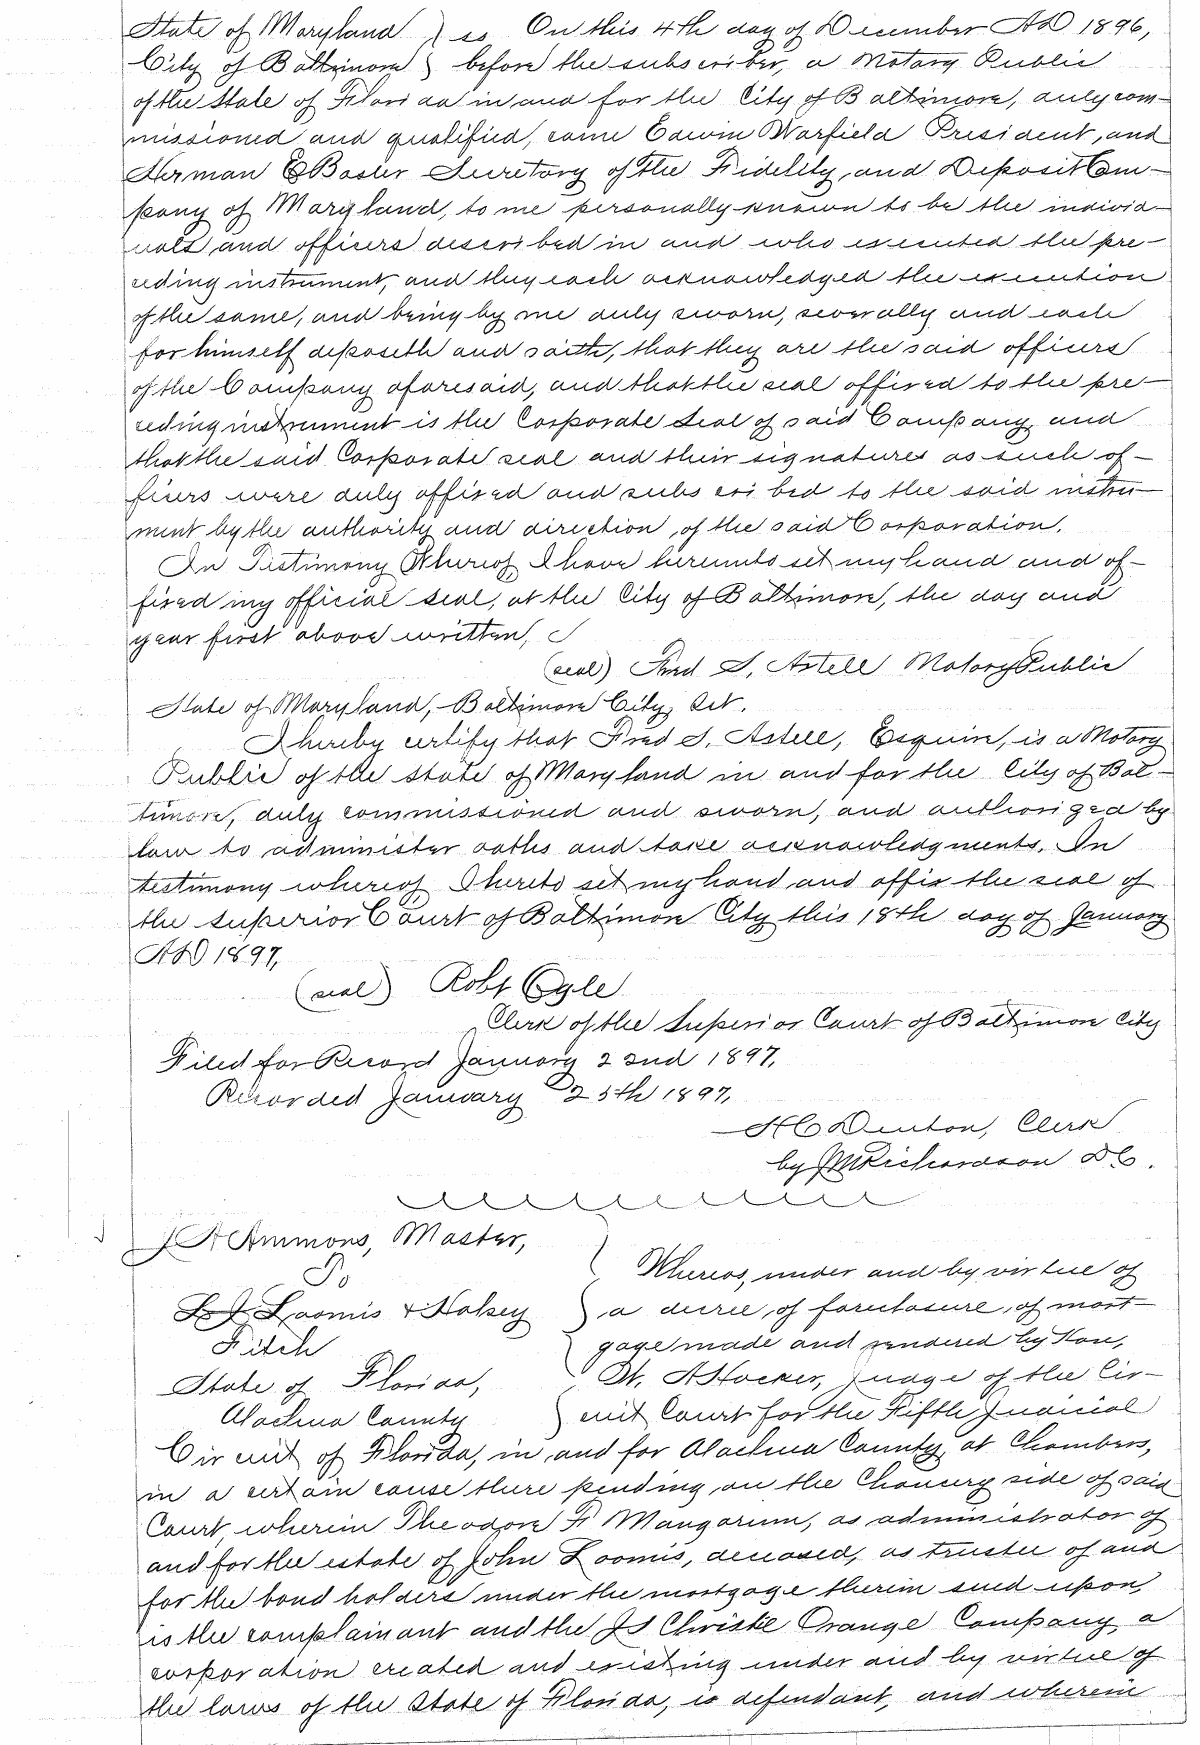 State of Maryland } ss On this 4th day of December AD 1896,
City of Baltimore } before the subscriber, a Notary Public
of the State of Florida in and for the City of Baltimore, duly com-
missioned and qualified, came Edwin Warfield President, and
Herman E Bosler Secretary of the Fidelity and Deposit Com-
pany of Maryland, to me personally known to be the individ-
uals and officers described in and who executed the pre-
ceding instrument, and they each acknowledged the execution
of the same, and being by me duly sworn, severally and each
for himself deposeth and saith, that they are the said officers
of the Company aforesaid, and that the seal affixed to the pre-
ceding instrument is the Corporate Seal of said Company, and
that the said Corporate seal and their signatures as such of-
ficers were duly affixed and subscribed to the said instru-
ment by the authority and direction, of the said Corporation.
In Testimony Whereof, I have hereunto set my hand and af-
fixed my official seal, at the City of Baltimore, the day and
year first above written,
(seal) Fred S, Astell Notary Public
State of Maryland, Baltimore City, Sct.
I hereby certify that Fred S. Astell, Esquire, is a Notary
Public of the State of Maryland in and for the City of Bal-
timore, duly commissioned and sworn, and authorized by
law to administer oaths and take acknowledgments. In
testimony whereof I hereto set my hand and affix the seal of
the Superior Court of Baltimore City this 18th day of January
AD 1897,
(seal) Robt Ogle
Clerk of the Superior Court of Baltimore City
Filed for Record January 22nd 1897,
Recorded January 25th 1897,
H C Denton, Clerk
by M Richardson D C.
J A Ammons, Master,
To
L J Loomis & Halsey
Fitch
State of Florida,
Alachua County
Whereas, under and by virtue of
a decree, of foreclosure, of mort-
gage made and rendered by Hon,
W. A Hocker, Judge of the Cir-
cuit Court for the Fifth Judicial
Circuit of Florida, in and for Alachua County, at Chambers,
in a certain cause there pending, on the Chancery side of said
Court, wherein Theodore F Mangarum, as administrator of
and for the estate of John Loomis, deceased, as trustee of and
for the bond holders under the mortgage therein sued upon,
is the complainant and the JS Christie Orange Company, a
corporation created and existing under and by virtue of
the laws of the State of Florida, is defendant, and wherein